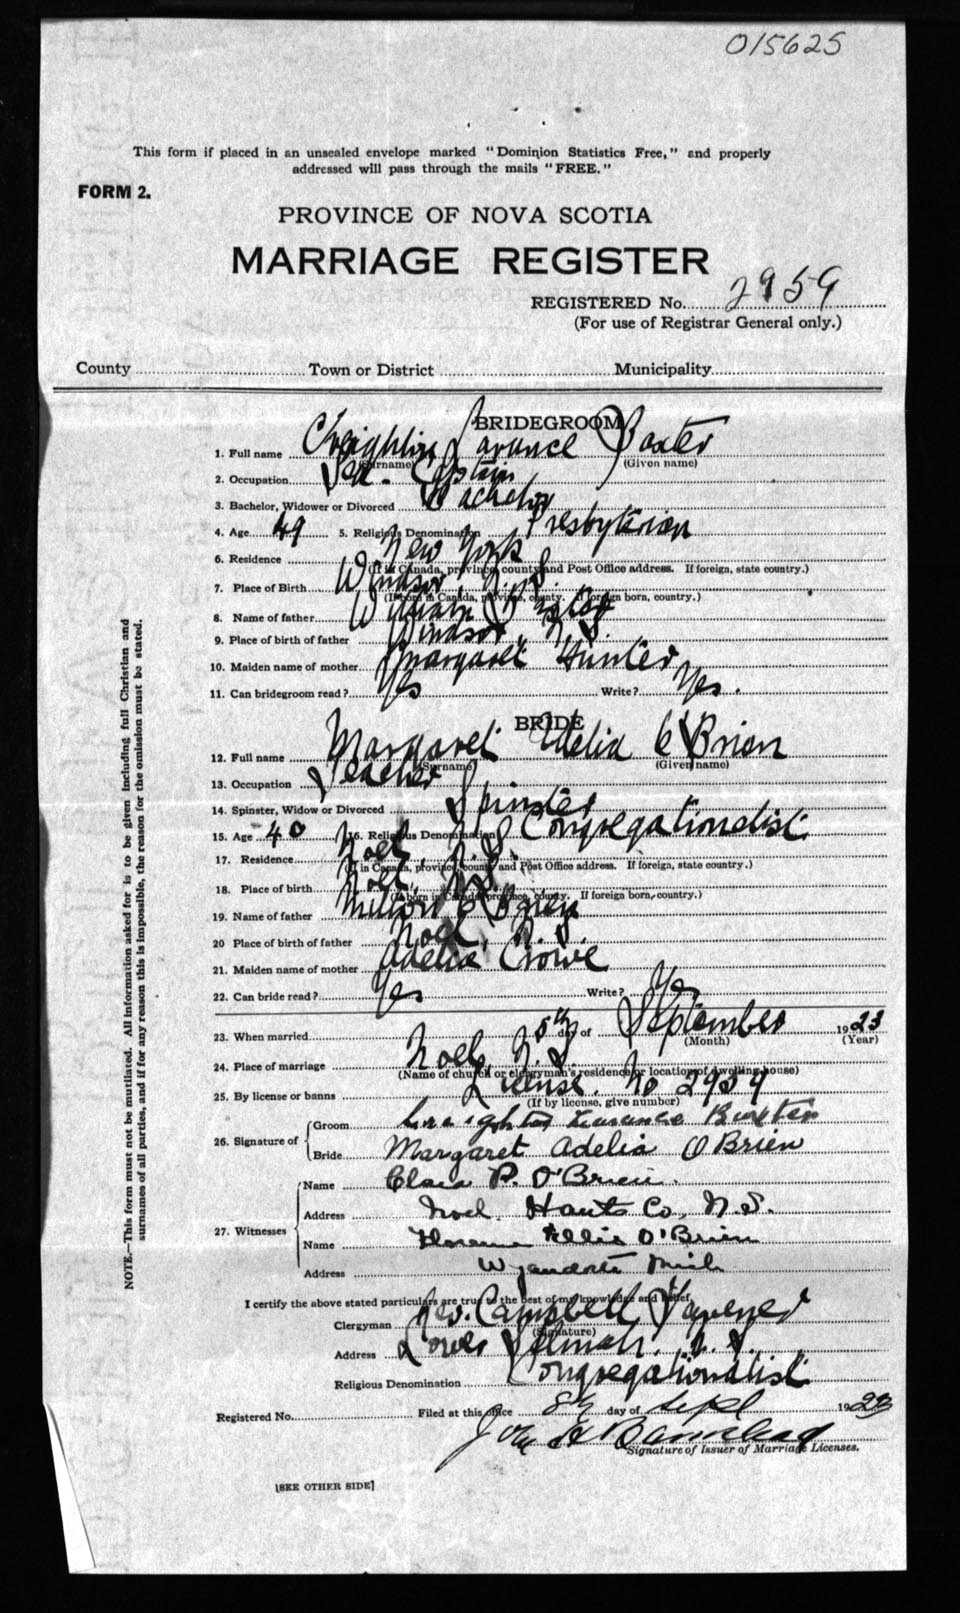 015625
This form if placed in an unsealed envelope marked "Dominion Statistics Free," and properly
addressed will pass through the mails "FREE."
FORM 2.
PROVINCE OF NOVA SCOTIA
MARRIAGE REGISTER
REGISTERED No. 2959
(For use of Registrar General only.)
County Town or District Municipality
BRIDEGROOM
1. Full name Creighton Larance Baxter
(Surname) (Given name)
2. Occupation Sea Captain
3. Bachelor, Widower or Divorced Bachelor
4. Age 49 5. Religious Denomination Presbyterian
6. Residence New York
(If in Canada, province, county and Post Office address. If foreign, state country.)
7. Place of Birth Windsor N.S.
(If born in Canada, province, county. If foreign born, country.)
8. Name of father William Baxter
9. Place of birth of father Windsor, N.S.
10. Maiden name of mother Margaret Hunter
11. Can bridegroom read? Yes Write? Yes.
BRIDE
12. Full name Margaret Adelia O'Brien
(Surname) (Given name)
13. Occupation Teacher
14. Spinster, Widow or Divorced Spinster
15. Age 40 16. Religious Denomination Congregationalist
17. Residence Noel, N.S.
(If in Canada, province, county and Post Office address. If foreign, state country.)
18. Place of birth Noel, N.S.
(If born in Canada, province, county. If foreign born, country.)
19. Name of father Milton O'Brien
20 Place of birth of father Noel, N.S.
21. Maiden name of mother Adelia Crowe
22. Can bride read? Yes Write? Yes
23. When married 5th day of September 1923
(Month) (Year)
24. Place of marriage Noel, N.S.
(Name of church or clergyman's residence or location of dwelling house)
25. By license or banns License No 2959
(If by license, give number)
26. Signature of Groom Creighton Laurance Baxter
Bride Margaret Adelia O'Brien
27. Witnesses Name Clara P. O'Brien.
Address Noel Hants Co, N.S.
Name Florence Ellis O'Brien
Address Wyandotte Mich
I certify the above stated particulars are true to the best of my knowledge and belief,
Clergyman Rev. Campbell
(Signature)
Address Lower Selmah. N.S.
Religious Denomination Congregationalist
Registered No. Filed at this office 8th day of Sept 1923
Signature of Issuer of Marriage Licenses.
[SEE OTHER SIDE]
NOTE.—This form must not be mutilated. All information asked for is to be given including full Christian and
surnames of all parties, and if for any reason this is impossible, the reason for the omission must be stated.